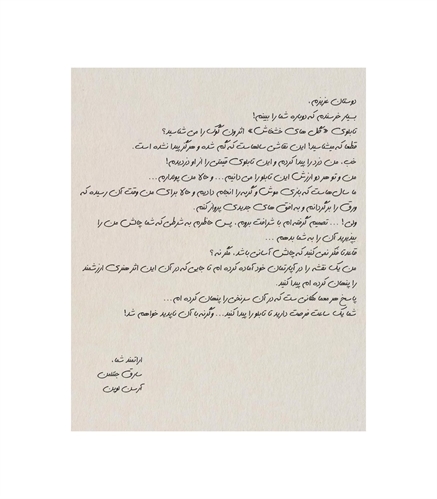 دوستان عزیزم،
بسیار خرسندم که دوباره شما را ببینم!
تابلوی «گل های خشخاش» اثر ون گوگ را می شناسید؟
قطعا که میشناسید! این نقاشی سالهاست که گم شده و هرگز پیدا نشده است.
خب، من دزد را پیدا کردم و این تابلوی قیمتی را از او دزدیدم!
من و تو هر دو ارزش این تابلو را می دانیم... و حالا من پولدارم...
ما سال هاست که بازی موش و گربه را انجام دادیم و حالا برای من وقت آن رسیده که
ورق را برگردانم و به افق های جدیدی پرواز کنم.
ولی! ... تصمیم گرفته ام با شرافت بروم. پس حاظرم به شرطی که شما چالش من را
بپذیرید آن را به شما بدهم ...
قاعدتا فکر نمی کنید که چالش آسانی باشد، مگر نه؟
من یک نقشه را در آپارتمان خود آماده کرده ام تا جایی که در آن این اثر هنری ارزشمند
را پنهان کرده ام پیدا کنید.
پاسخ هر معما مکانی ست که در آن سرنخی را پنهان کرده ام ...
شما یک ساعت فرصت دارید تا تابلو را پیدا کنید... وگرنه با آن ناپدید خواهم شد!
ارادتمند شما،
سارق جنتلمن
آرسن لوپن